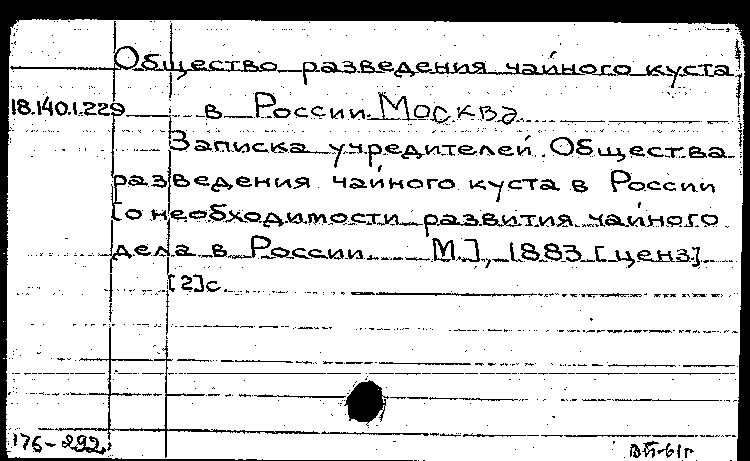 Общество разведения чайного куста
18.140.1.229 в России. Москва
Записка учредителей Общества
разведения чайного куста в России
[о необходимости развития чайного
дела в России. М.], 1883 [ценз]
[2]с.
176-292